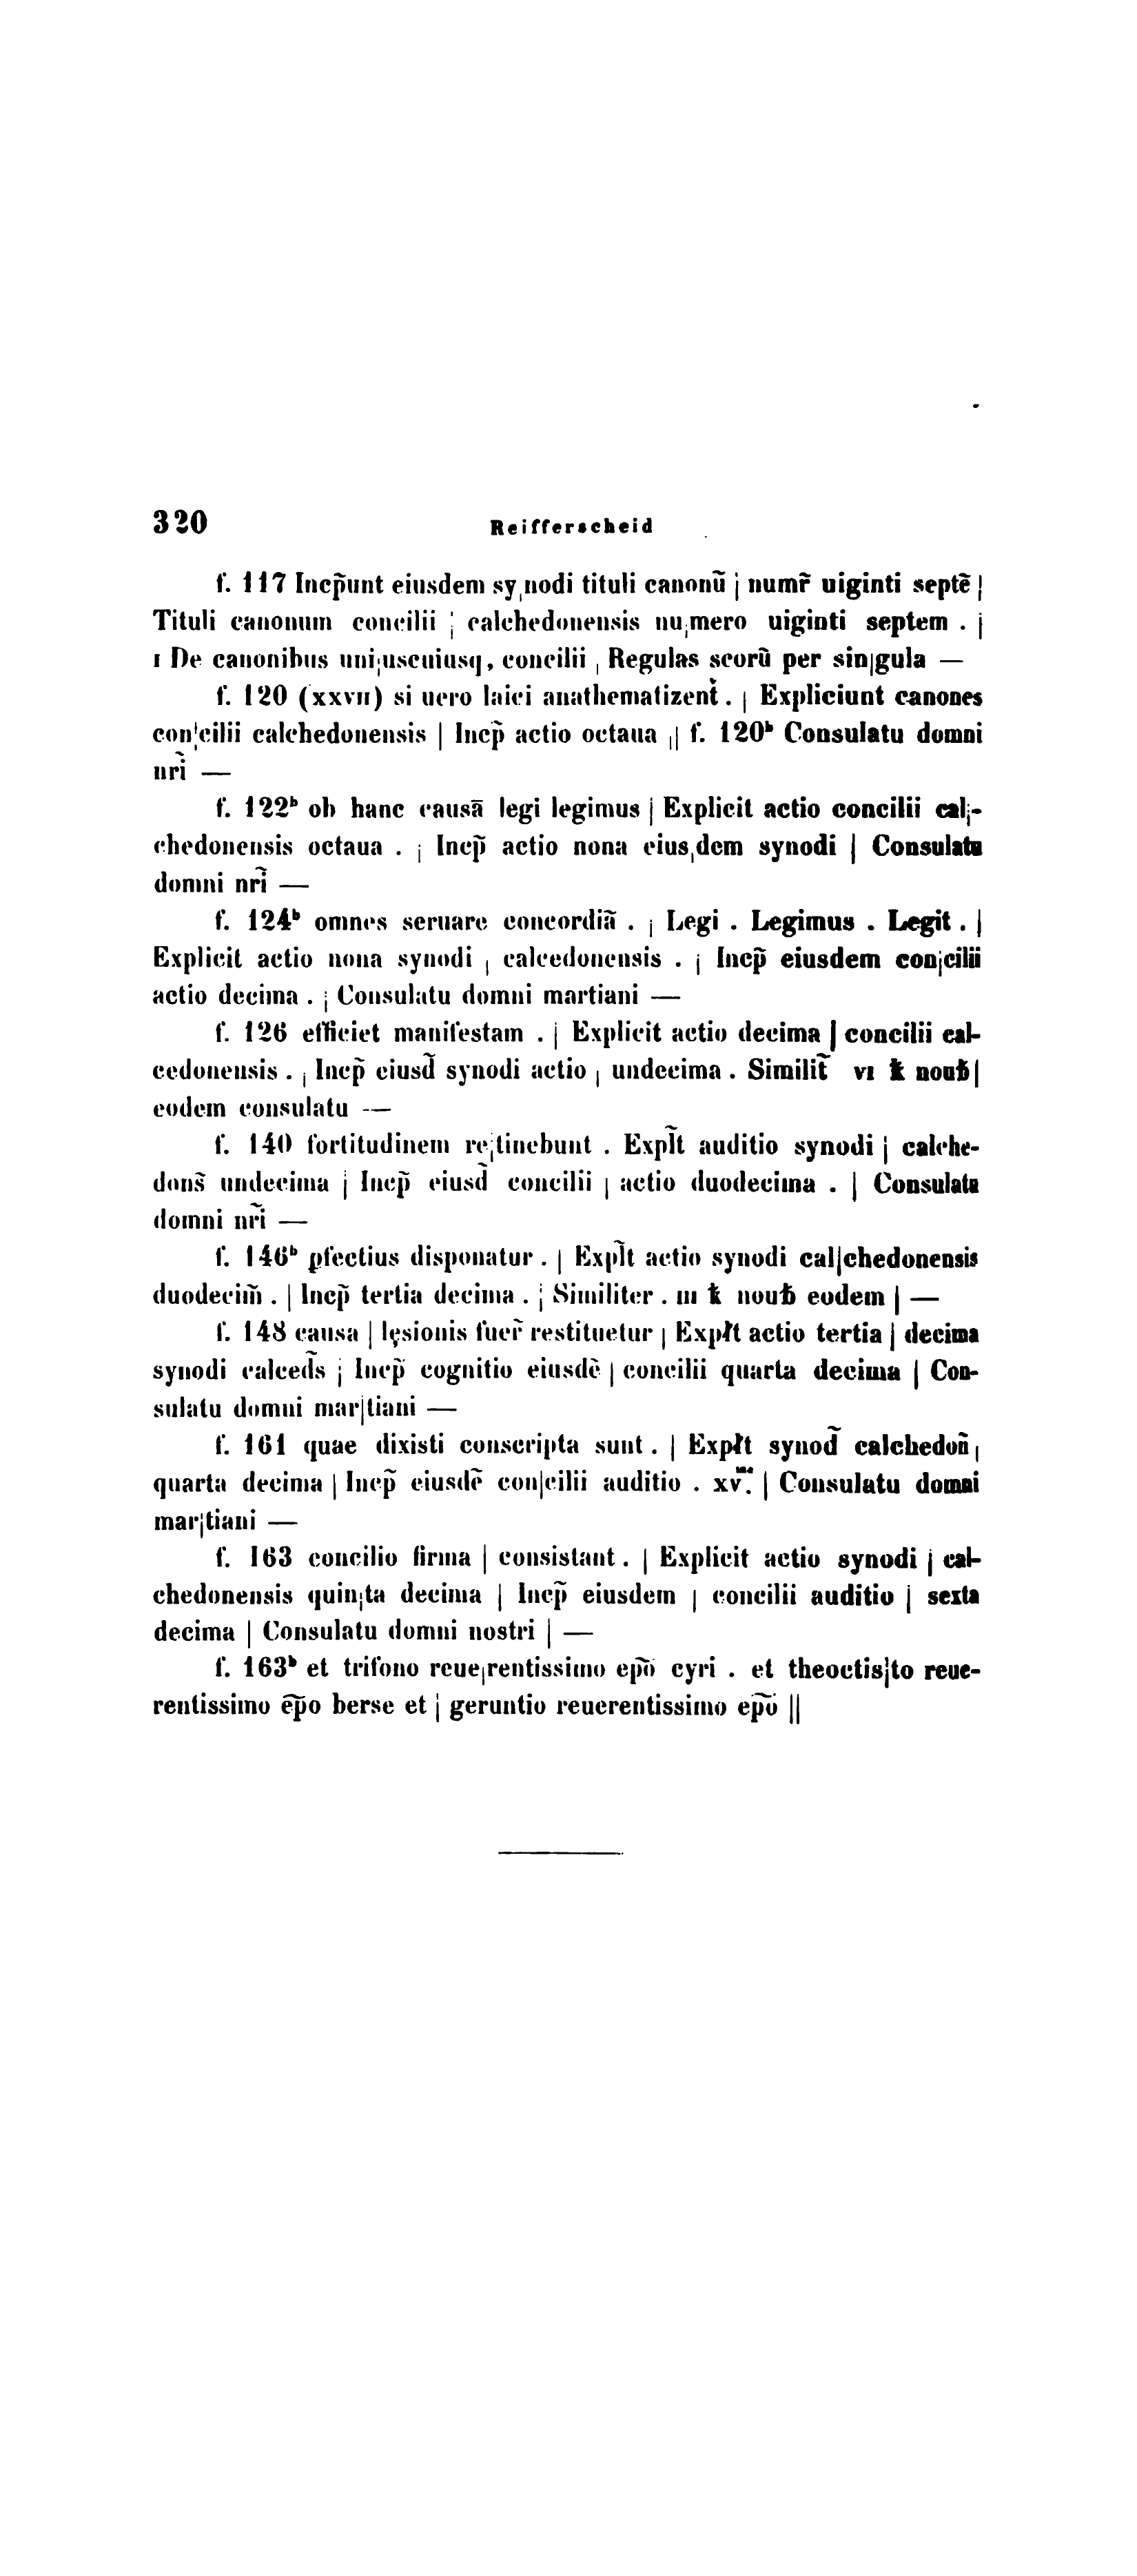 320 Reifferscheid
f. 117 Incp̃unt eiusdem sy|nodi tituli canonũ | numr̃ uiginti septẽ |
Tituli canonum concilii | calchedonensis nu|mero uiginti septem . |
ı De canonibus uni|uscuiusq, concilii | Regulas scorũ per sin|gula —
f. 120 (xxvıı) si uero laici anathematizent̀ . | Expliciunt canones
con|cilii calchedonensis | Incp̃ actio octaua || f. 120ᵇ Consulatu domni
nr̃i —
f. 122ᵇ ob hanc causã legi legimus | Explicit actio concilii cal|-
chedonensis octaua . | Incp̃ actio nona eius|dem synodi | Consulatu
domni nr̃i —
f. 124ᵇ omnes seruare concordiã . | Legi . Legimus . Legit . |
Explicit actio nona synodi | calcedonensis . | Incp̃ eiusdem con|cilii
actio decima . | Consulatu domni martiani —
f. 126 efficiet manifestam . | Explicit actio decima | concilii cal-
cedonensis . | Incp̃ eiusd̃ synodi actio | undecima . Similit̃ vı ꝁ nouƀ |
eodem consulatu —
f. 140 fortitudinem re|tinebunt . Expl̃t auditio synodi | calche-
dons̃ undecima | Incp̃ eiusd̃ concilii | actio duodecima . | Consulatu
domni nr̃i —
f. 146ᵇ ꝑfectius disponatur . | Expl̃t actio synodi cal|chedonensis
duodecim̃ . | Incp̃ tertia decima . | Similiter . ııı ꝁ nouƀ eodem | —
f. 148 causa | lęsionis fuer̃ restituetur | Expłt actio tertia | decima
synodi calced̃s | Incp̃ cognitio eiusdẽ | concilii quarta decima | Con-
sulatu domni mar|tiani —
f. 161 quae dixisti conscripta sunt . | Expłt synod̃ calchedoñ |
quarta decima | Incp̃ eiusdẽ con|cilii auditio . xv.ᵐᵃ | Consulatu domni
mar|tiani —
f. 163 concilio firma | consistant . | Explicit actio synodi | cal-
chedonensis quin|ta decima | Incp̃ eiusdem | concilii auditio | sexta
decima | Consulatu domni nostri | —
f. 163ᵇ et trifono reue|rentissimo ep̃o cyri . et theoctis|to reue-
rentissimo ep̃o berse et | geruntio reuerentissimo ep̃o ||